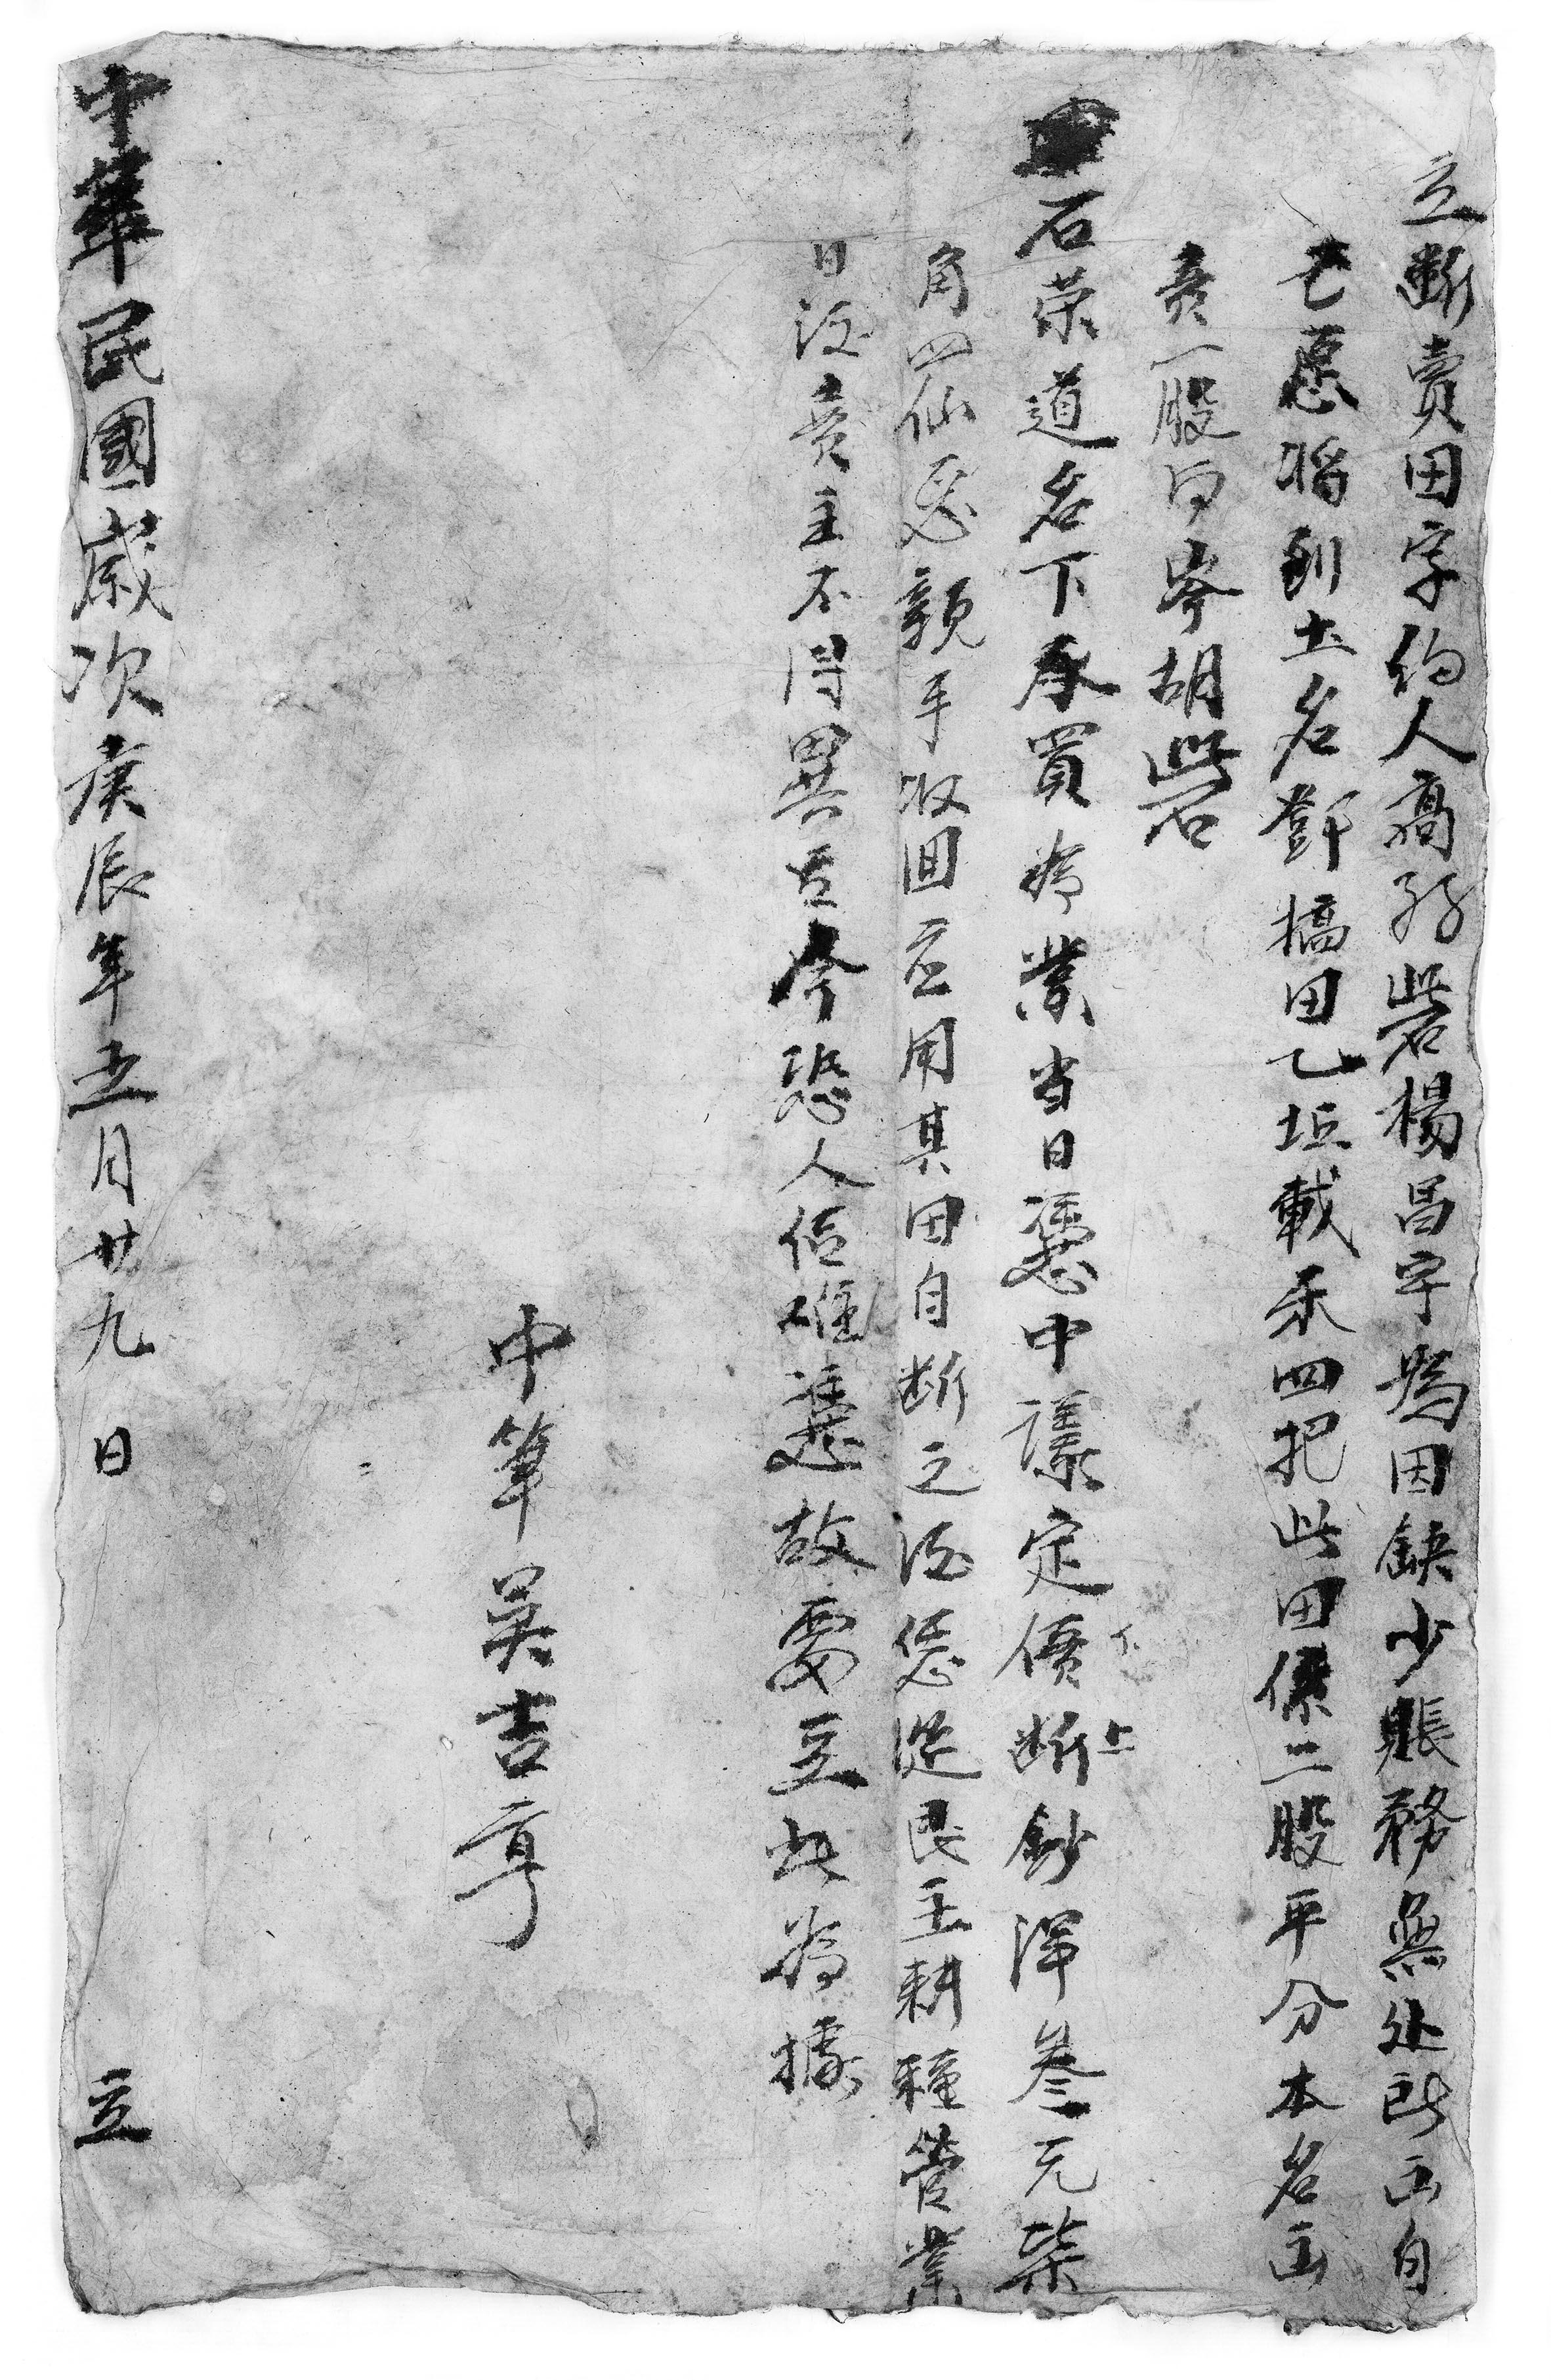 立斷賣田字約人高孖砦楊昌宇為因缺少賬務無处所出自
己愿將到土名鄧槁田乙坵載禾四把此田係二股平分本名出
賣一股问岑胡砦
石荣道名下承買為業当日凴中議定價断上鈔洋叁元柒
角四仙正親手收回应用其田自断之後恁從買主耕種管業
日後賣主不得異言今恐人信难凴故要立此為據
中筆吴吉亨
中華民國歲次庚辰年五月廿九日 立